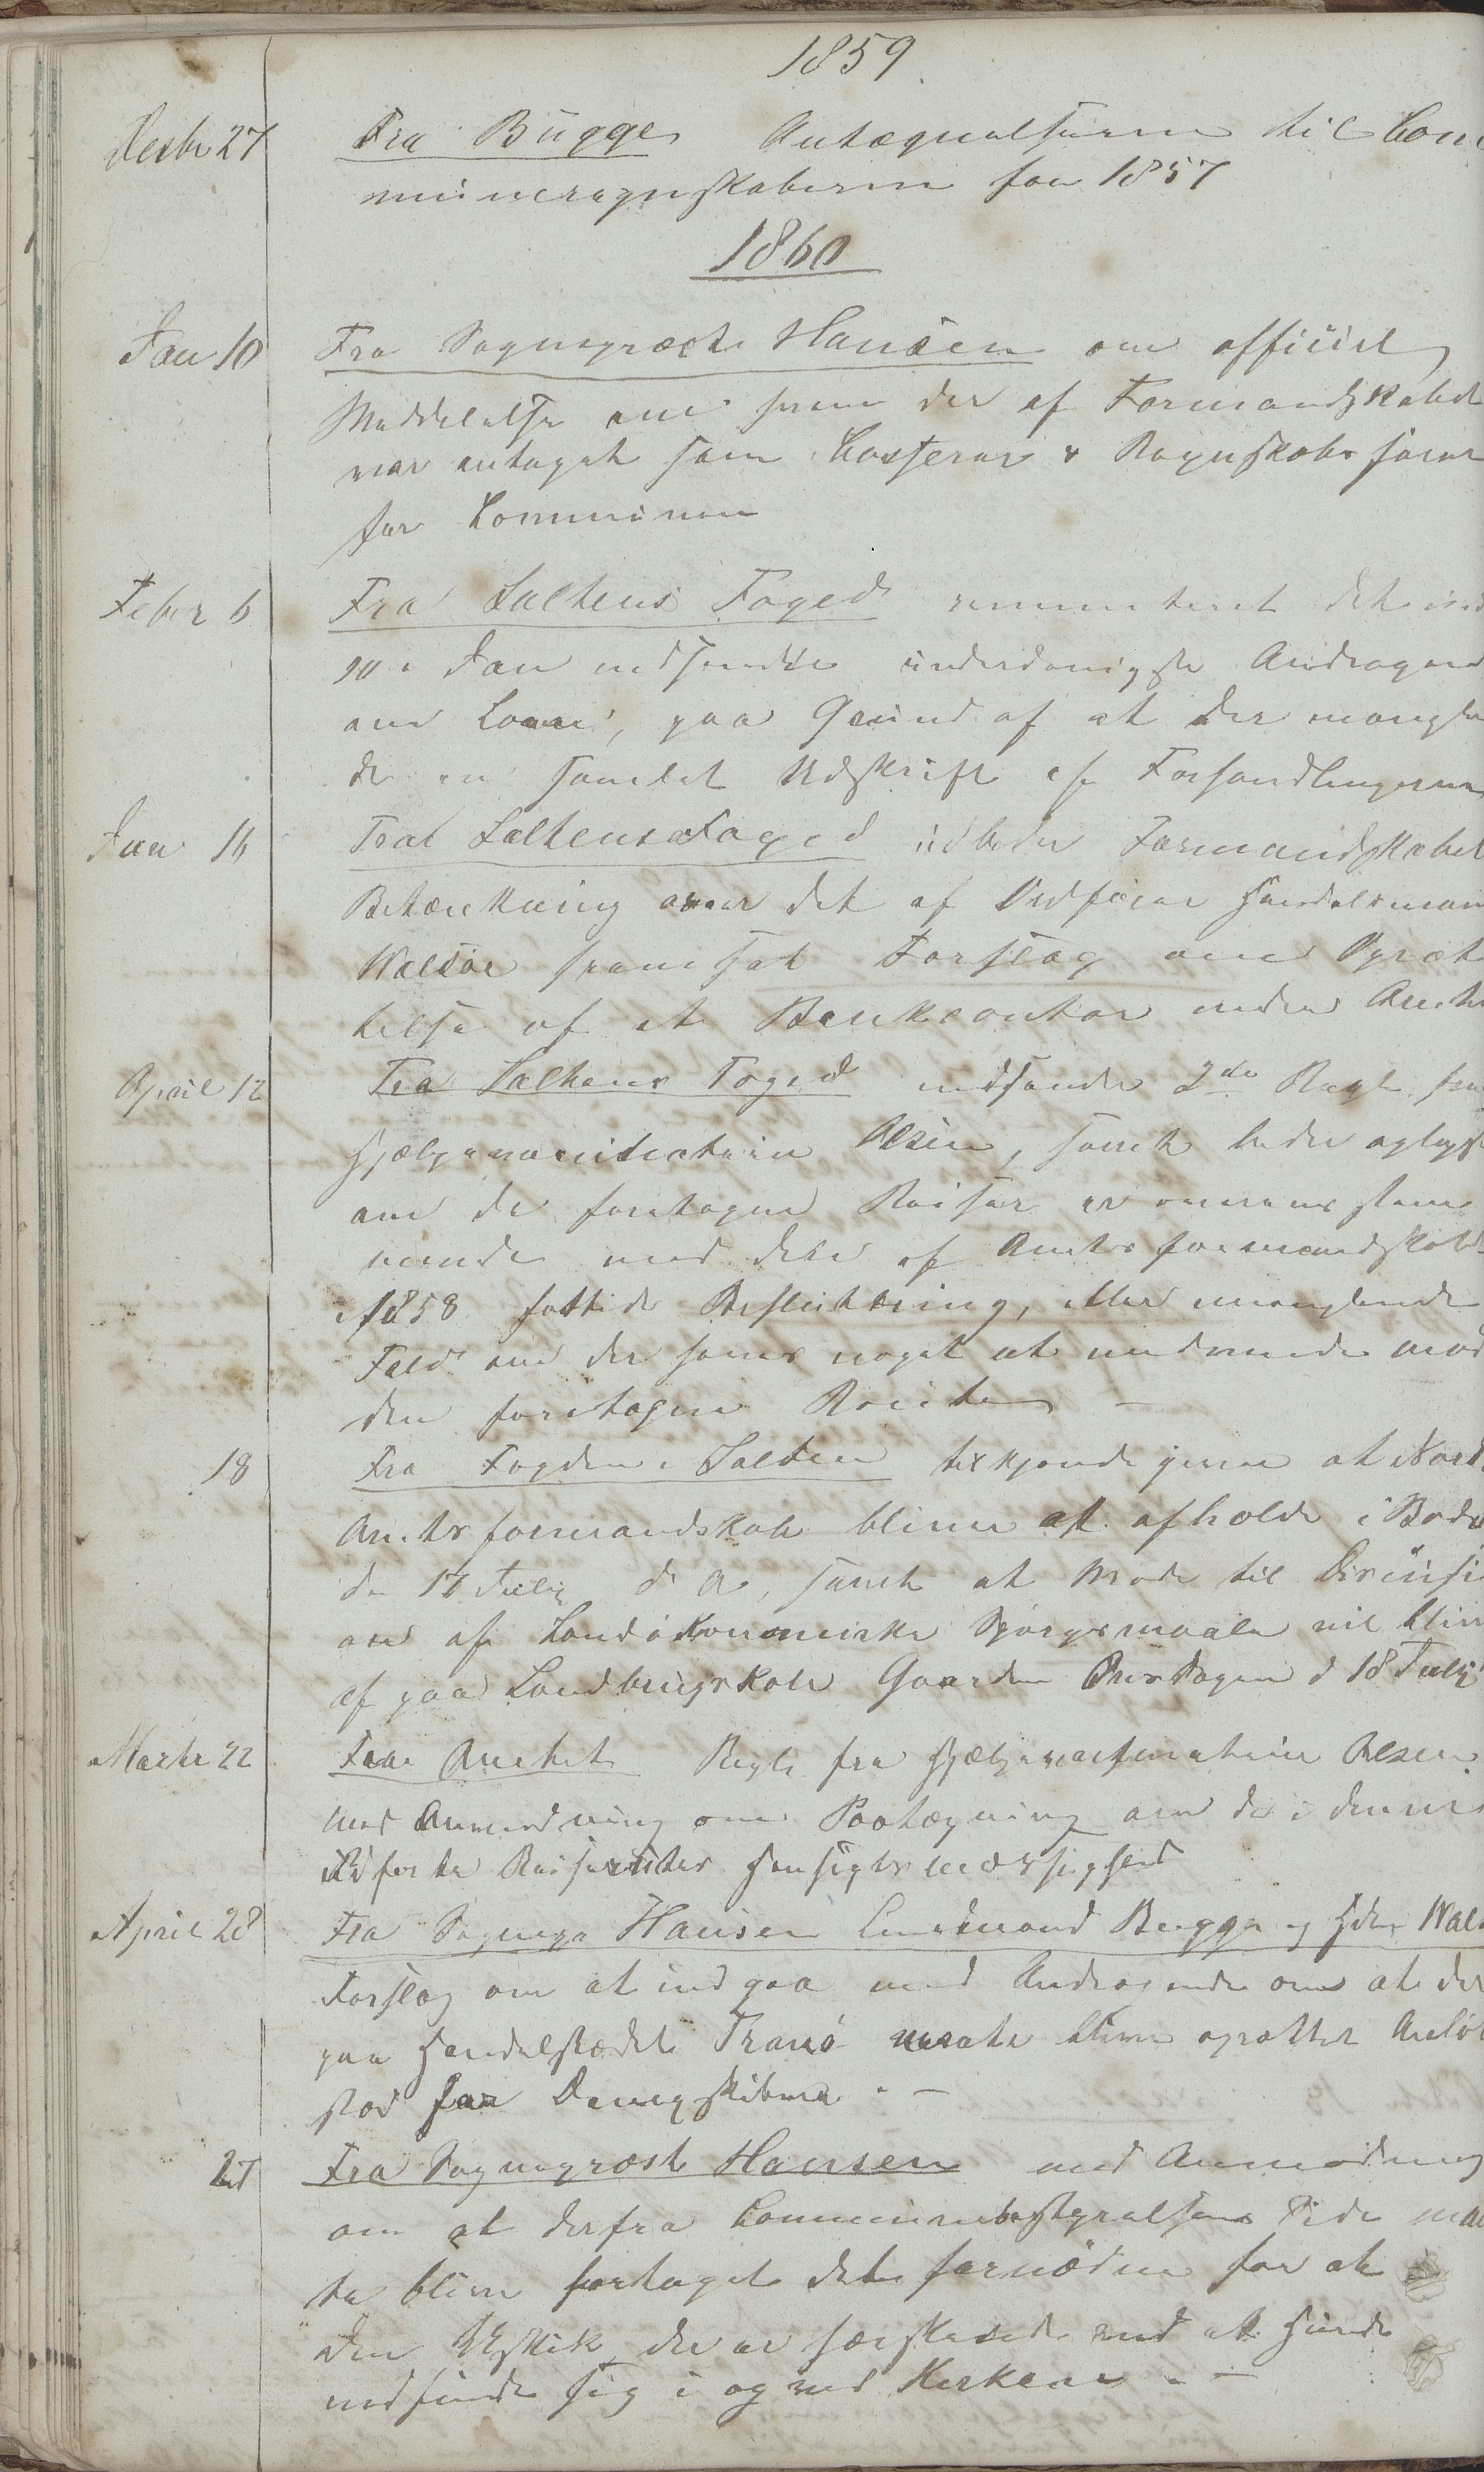 1859
Decbr 27 Fra Bugge Antegnelserne til Com
muneregnskaberne for 1857
1860
Jan 10 Fra Sognepræst Hansen om officiel
Meddelelse om hvem der af Formandskabet
var antaget som Casserer & Regnskabsfører
for Communen
Febr 6 Fra Saltens Foged remitteret det
10 Jan indsendte underdanigste Andragend
om Laan, paa Grund af at der mangle
de en samlet Udskrift af Forhandlingerne
Jan 16 Fra Saltens Foged udbeder Formandskabet
Betænkning over det af Ordfører Handelsmand
Walsøe fremsat Forslag om Opræt
telse af et Bankcontor inden Amtet
April 12 Fra Saltens Foged indsender 2de Regl. fra
Hjælpevaccinateur Olsen, samt beder oplyst
om de foretagne Reiser er overensstem
mende med den af Amtsformandskabet
i 1858 fattede Beslutning, eller manglende
Fald om der haves noget at indvende mod
den foretagne Route —
18 Fra Fogden i Salten tilkjendegiven at Nord
Amtsformandskab bliver at afholde i Bodø
den 17 July d. A., samt at Møde til Discussi
on af Landøkonomiske Spørgsmaale vil blive
af paa Landbrugskole Gaarden Onsdagen d 18 July
Marts 22 Fra Amtet Regl. fra Hjælpevaccinateur Olsen
med Anmodning om Paategning om de i denne
Opførte Reiseruter Hensigtsmæssighed
April 28 Fra Sognepr Hansen Lensmand Bugge og Hdlm Wals
Forslag om at indgaa med Andragende om at der
paa Handelsstedet Tranø maate blive oprettet Anløb
sted for Dampskibene. —
27 Fra Sognepræst Hansen med Anmodning
om at der fra Communebestyrelsens Side maa
te blive foretaget det fornødne for at
den Uskik, der er herskende med at Hunde
indfinde sig i og ved Kirkene —